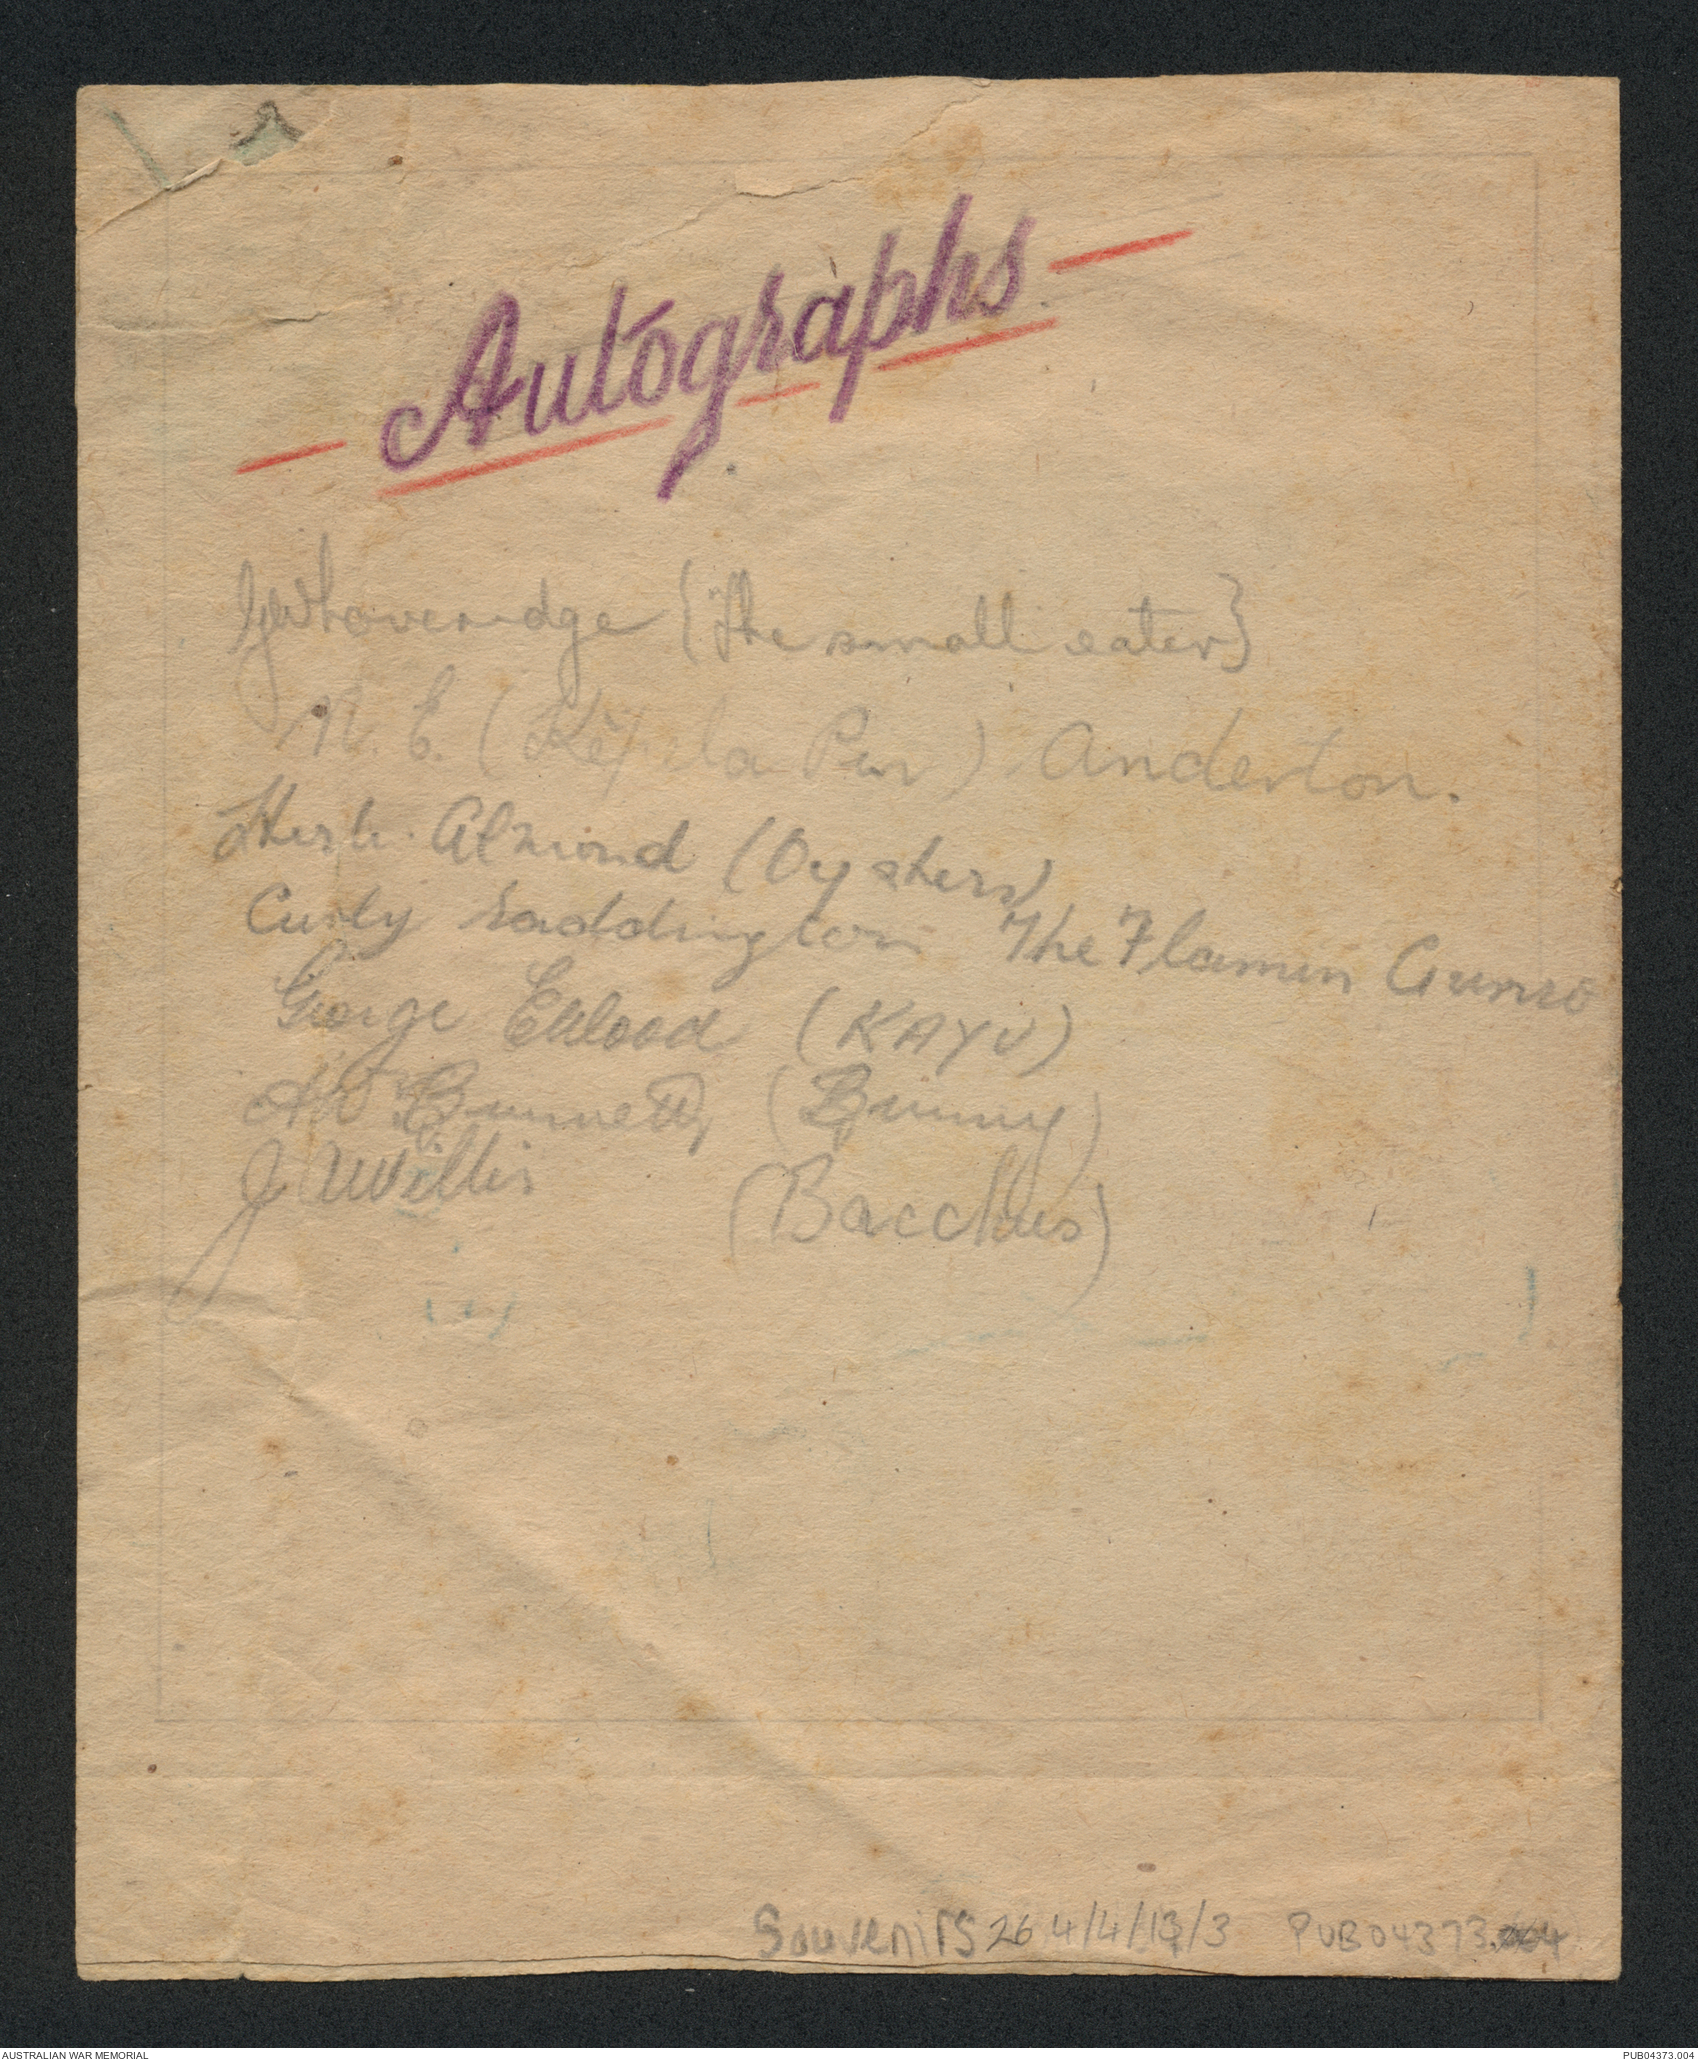 Autographs
{The small eater}
N. E. (Kepela Pur) Anderton.
Herb. Almond (Oysters)
Curly Saddington The Flamin Gunso
George Ekblood (KAYU)
Bunnett (Bunny)
J Willis (Bacchus)
Souvenirs 26 4/4/13/3 PUB04373.004
AUSTRALIAN WAR MEMORIAL PUB04373.004